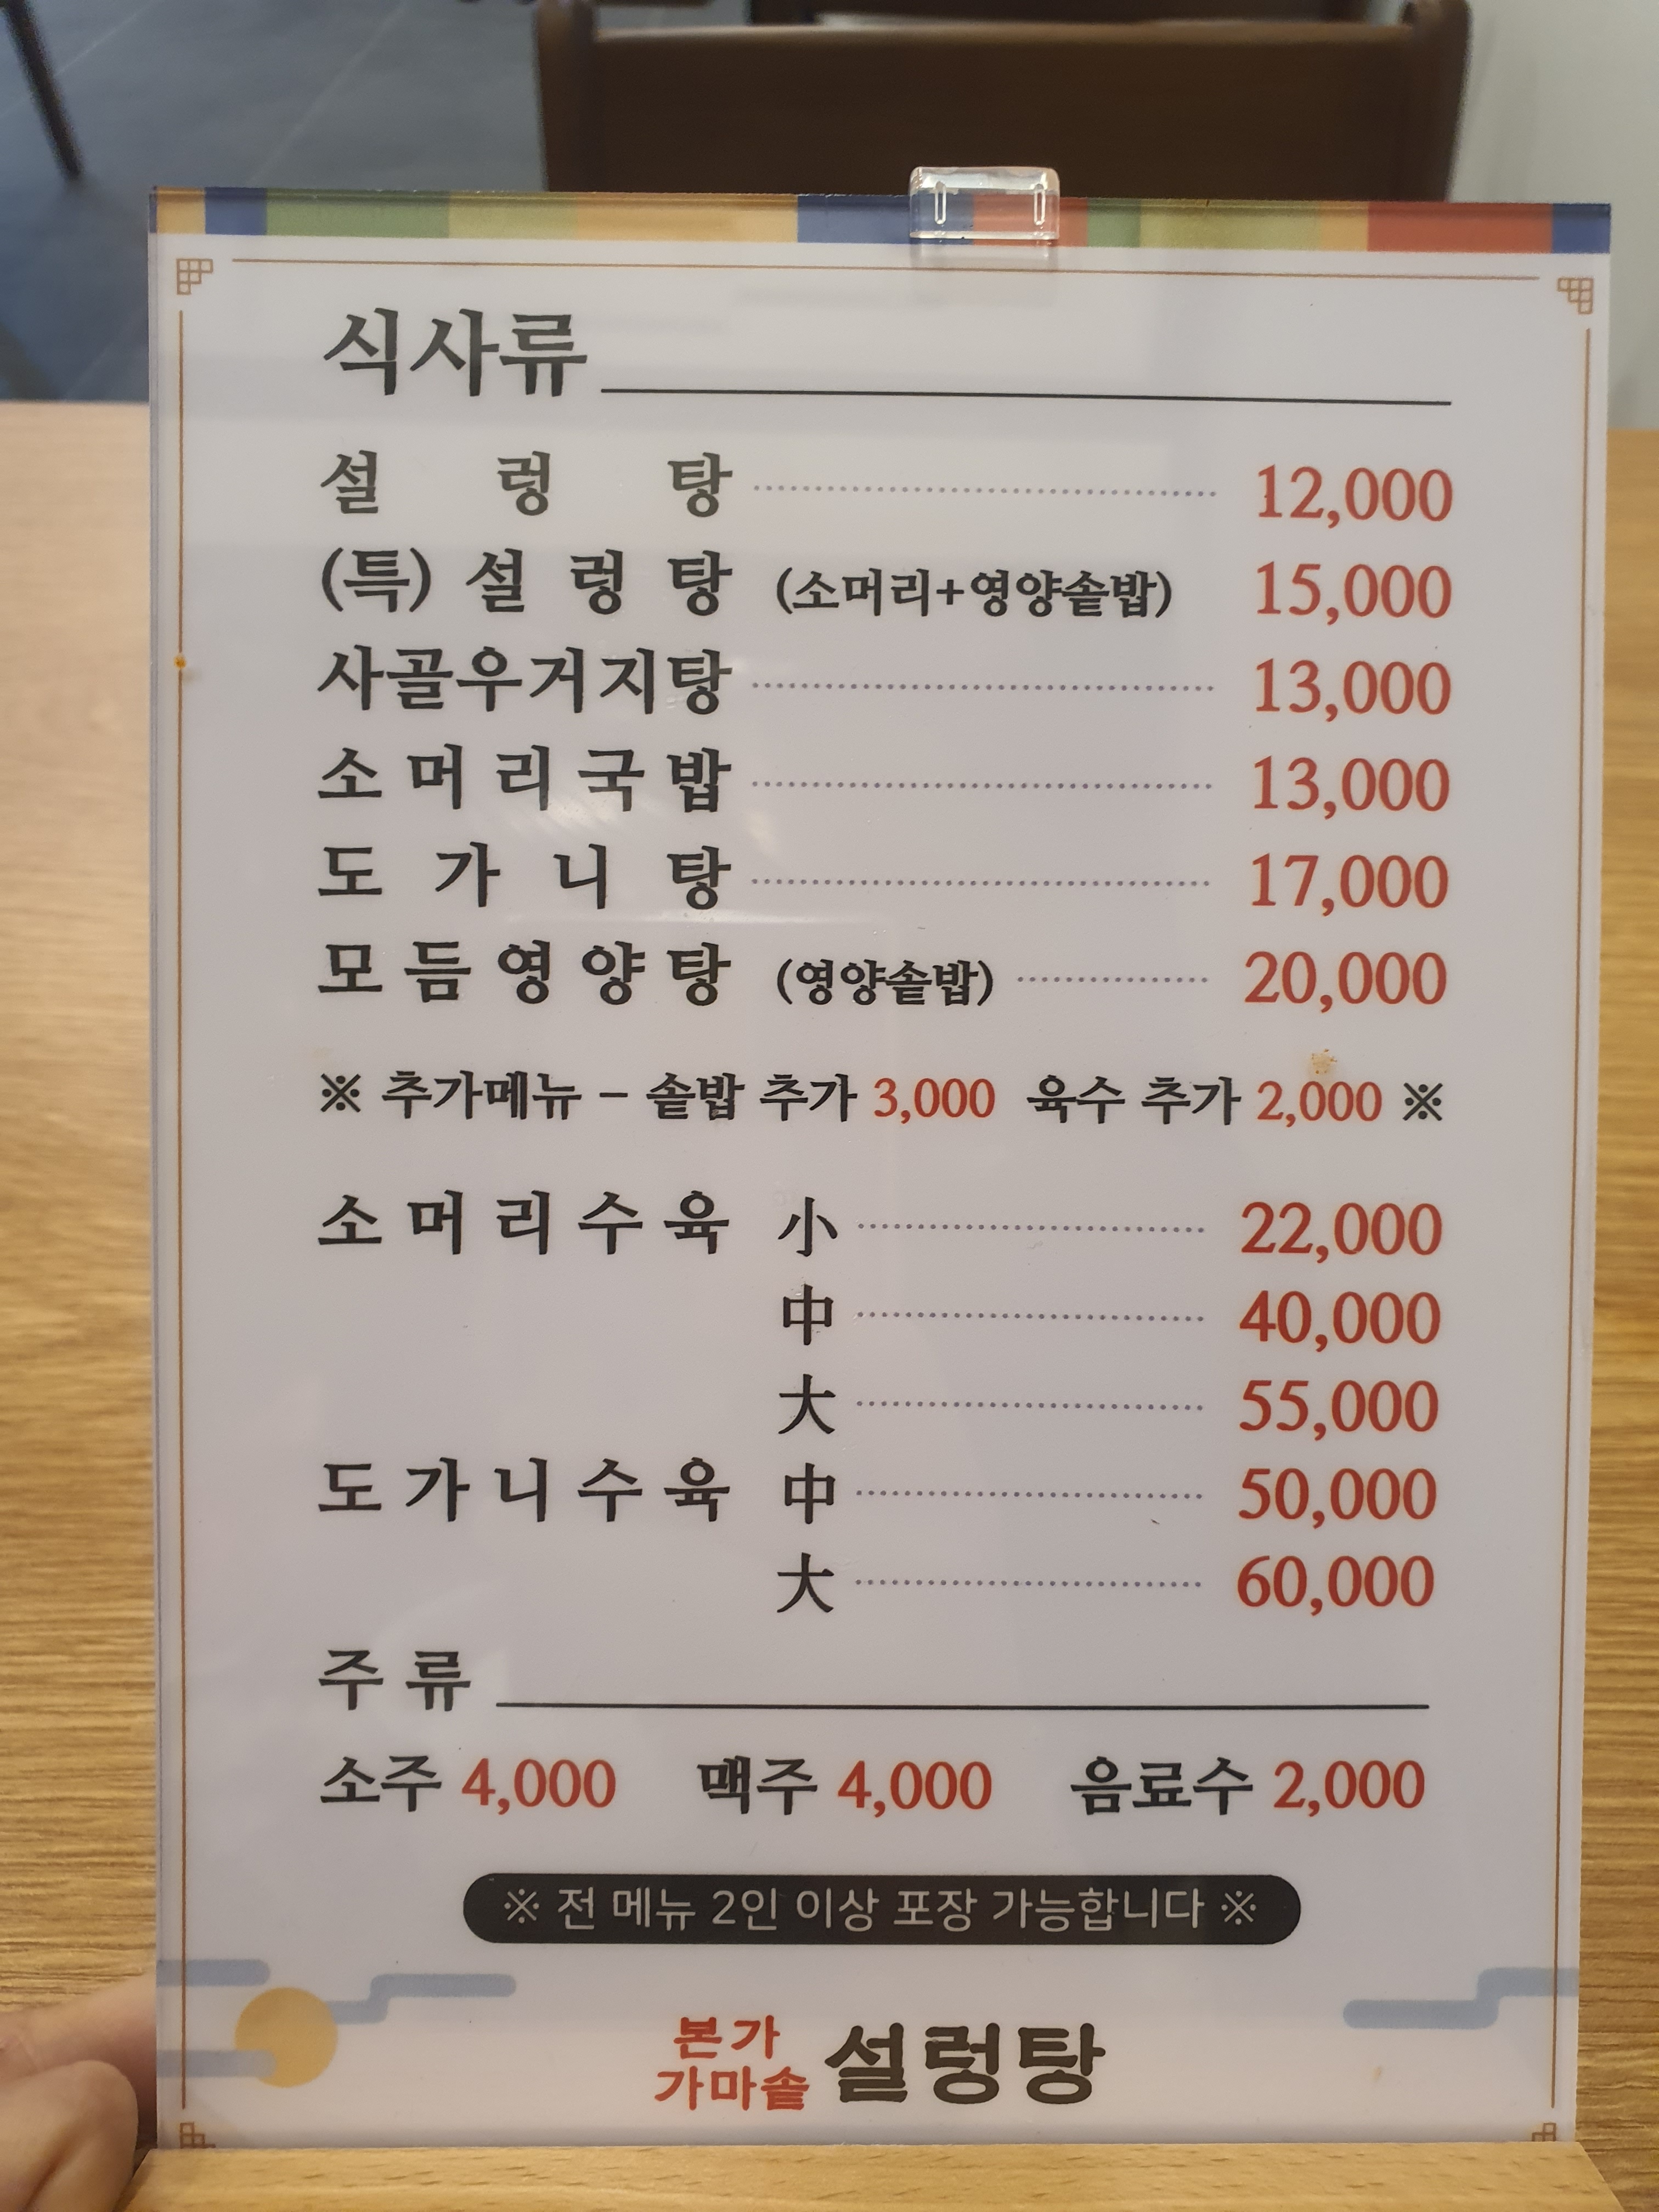 식사류
설렁탕 12,000
(특)설렁탕 (소머리+영양솥밥) 15,000
사골우거지탕 13,000
소머리국밥 13,000
도가니탕 17,000
모듬영양탕 (영양솥밥) 20,000
※ 추가메뉴 - 솥밥 추가 3,000 육수 추가 2,000 ※
소머리수육 小 22,000
中 40,000
大 55,000
도가니수육 中 50,000
大 60,000
주류
소주 4,000 맥주 4,000 음료수 2,000
※ 전 메뉴 2인 이상 포장 가능합니다 ※
본가
가마솥 설렁탕